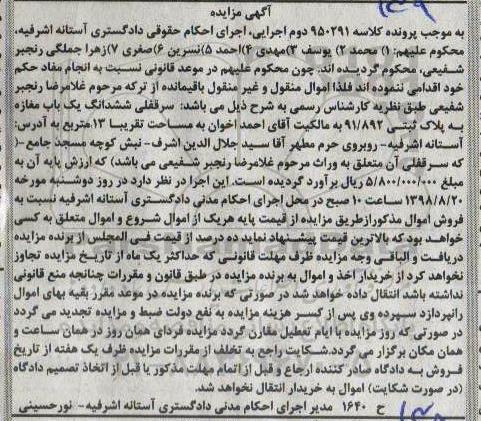 آگهی مزایده
به موجب پرونده کلاسه ۹۵۰۲۹۱ دوم اجرایی، اجرای احکام حقوقی دادگستری آستانه اشرفیه،
محکوم علیهم: ۱) محمد ۲) یوسف ۳)مهدی ۴)احمد ۵)نسرین ۶)صغری ۷)زهرا جملگی رنجبر
شفیعی، محکوم گردیده اند. چون محکوم علیهم در موعد قانونی نسبت به انجام مفاد حکم
خود اقدامی ننموده اند فلذا اموال منقول و غیر منقول باقیمانده از ترکه مرحوم غلامرضا رنجبر
شفیعی طبق نظریه کارشناس رسمی به شرح ذیل می باشد: سرقفلی ششدانگ یک باب مغازه
به پلاک ثبتی ۹۱/۸۹۲ به مالکیت آقای احمد اخوان به مساحت تقریبا ۱۳مترمربع به آدرس:
آستانه اشرفیه- روبروی حرم مطهر آقا سید جلال الدین اشرف- نبش کوچه مسجد جامع -(
که سرقفلی آن متعلق به وراث مرحوم غلامرضا رنجبر شفیعی می باشد) که ارزش پایه آن به
مبلغ ۵/۸۰۰/۰۰۰/۰۰۰ ریال برآورد گردیده است. این اجرا در نظر دارد در روز دوشنبه مورخه
۱۳۹۸/۸/۲۰ ساعت ۱۰ صبح در محل اجرای احکام مدنی دادگستری آستانه اشرفیه نسبت به
فروش اموال مذکورازطریق مزایده از قیمت پایه هریک از اموال شروع و اموال متعلق به کسی
خواهد بود که بالاترین قیمت پیشنهاد نماید ده درصد از قیمت فی المجلس از برنده مزایده
دریافت و الباقی وجه مزایده ظرف مهلت قانونی که حداکثر یک ماه از تاریخ مزایده تجاوز
نخواهد کرد از خریدار اخذ و اموال به برنده مزایده در طبق قانون و مقررات چنانچه منع قانونی
نداشته باشد انتقال داده خواهد شد. در صورتی که برنده مزایده در موعد مقرر بقیه بهای اموال
رانپردازد سپرده وی پس از کسر هزینه مزایده به نفع دولت ضبط و مزایده تجدید می گردد
در صورتی که روز مزایده با ایام تعطیل مقارن گردد مزایده فردای همان روز در همان ساعت و
همان مکان برگزار می گردد.شکایت راجع به تخلف از مقررات مزایده ظرف یک هفته از تاریخ
فروش به دادگاه صادر کننده ارجاع و قبل از اتمام مهلت مذکور یا قبل از اتخاذ تصمیم دادگاه
(در صورت شکایت) اموال به خریدار انتقال نخواهد شد.
ح ۱۶۴۰ مدیر اجرای احکام مدنی دادگستری آستانه اشرفیه- نورحسینی